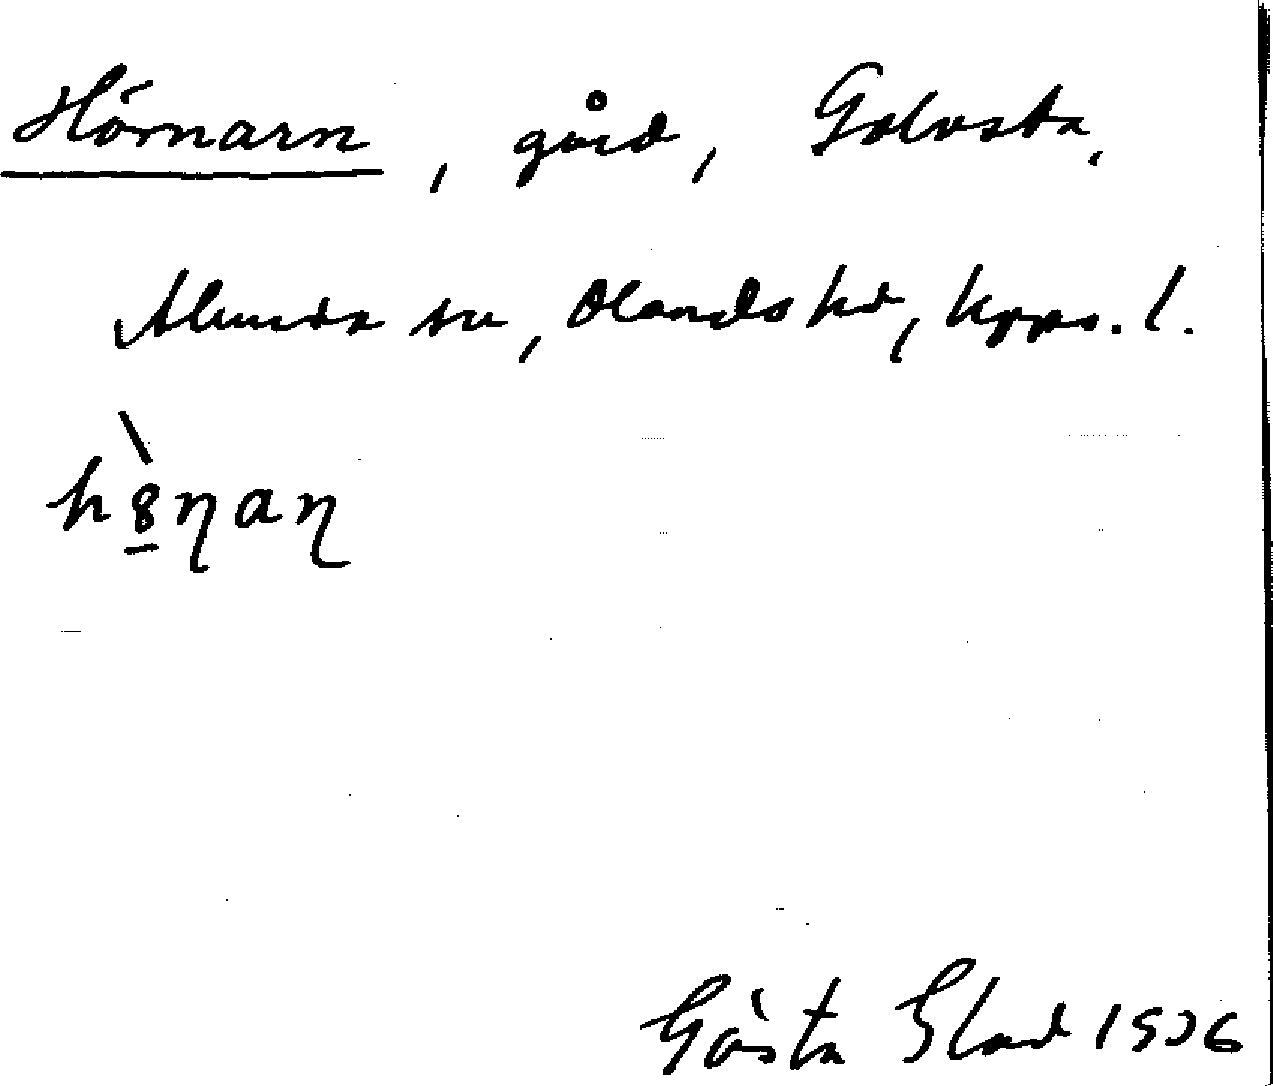 Hörnarn, gård, Golvsta,
Alunda sn, Olands hd, Upps. l.
hö̀ṇaṇ
Gösta Blad 1936